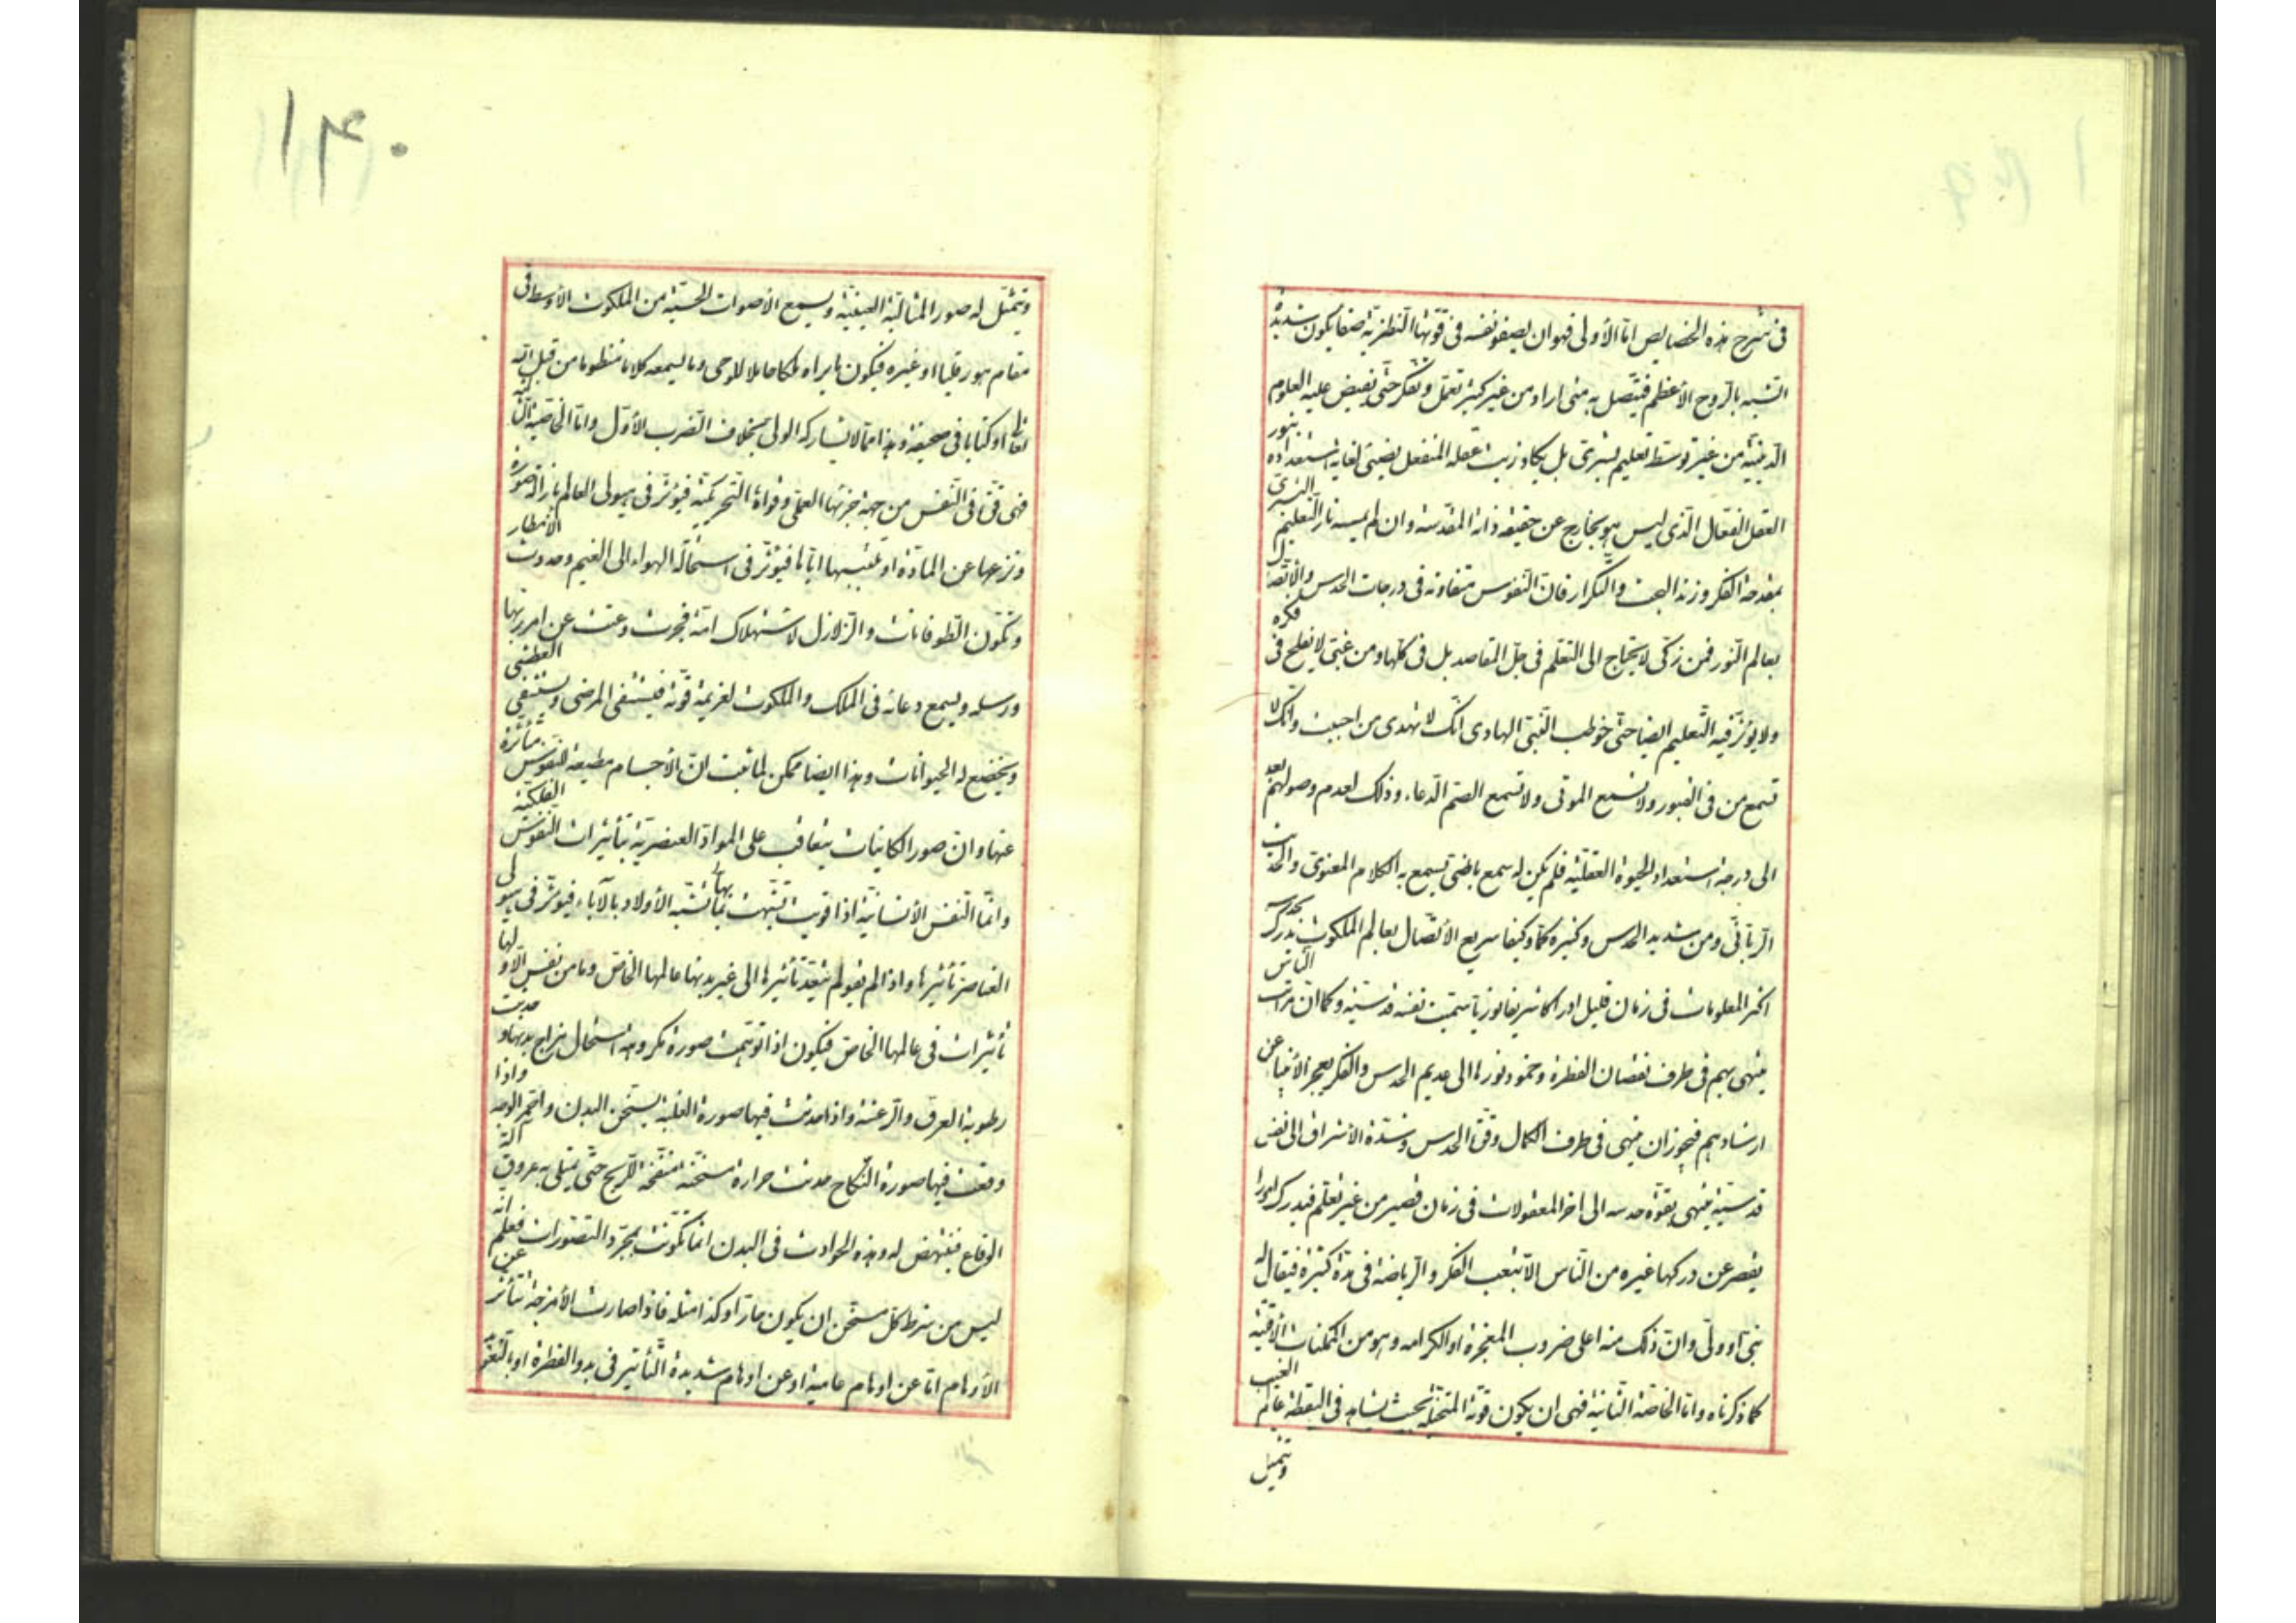 فى شرح هذه الخصايص اما الأولى فهو ان يصفو نفسه فى قوتها النظرية صفا يكون شديدة
التشبه بالروح الأعظم فيتصل به متى اراد من غير كثير تعمل وتفكر حتى يفيض عليه العلوم
الدينية من غير توسط تعليم بشرى بل يكاد زيت عقله المنفعل يضيئ لغاية استعداده بنور
العقل الفعال الذى ليس هو بخارج عن حقيقة ذاته المقدسة وان لم يمسسه نار التعليم البشرى
بمقدحة الفكر وزند البحث والتكرار فان النفوس متفاوتة فى درجات الحدس والاتصال
بعالم النور فمن زكى لا يحتاج الى التعلم فى جل المقاصد بل فى كلها ومن غبى لا يفلح فى فكره
ولا يؤثر فيه التعليم ايضا حتى خوطب النبى الهادى انك لا تهدى من احببت وانك لا
تسمع من فى القبور ولا تسمع الموتى ولا تسمع الصم الدعاء وذلك لعدم وصولهم بعد
الى درجة استعداد الحيوة العقلية فلم يكن له سمع باطنى يسمع به الكلام المعنوى والحديث
الربانى ومن شديد الحدس وكثيره كما وكيفا سريع الأتصال بعالم الملكوت يدرك بحدسه
اكثر المعلومات فى زمان قليل ادراكا شريفا نوريا سميت نفسه قدسية وكما ان مراتب الناس
ينتهى بهم فى طرف نقصان الفطرة وخمود نورها الى عديم الحدس والفكر يعجز الأنبيا عن
ارشادهم فيجوز ان ينتهى فى طرف الكمال وقوة الحدس وشدة الاشراق الى نفس
قدسية ينتهى بقوة حدسه الى اخر المعقولات فى زمان قصير من غير تعلم فيدرك امورا
يقصر عن دركها غيره من الناس الا بتعب الفكر والرياضة فى مدة كثيرة فيقال له
نبى او ولى وان ذلك منه اعلى ضروب المعجزة او الكرامه وهو من الممكنات الأقلية
كما ذكرناه واما الخاصة الثانية فهى ان يكون قوته المتخيلة بحيث يشاهد فى اليقظة عالم الغيب
ويتمثل
١٤٠
ويتمثل له صور المثالية الغيبية ويسمع الأصوات الحسية من الملكوت الأوسط فى
مقام هورقليا او غيره فيكون ما يراه ملكا حاملا للوحى وما يسمعه كلاما منظوما من قبل الله
تعالى او كتابا فى صحيفة وهذا مما لا يشاركه الولى بخلاف الضرب الأول واما الخاصية الثالثة
فهى قوة فى النفس من جهة جزئها العملى وقواه التحريكية فيؤثر فى هيولى العالم بازالة صورة
ونزعها عن المادة او تلبيسها اياها فيؤثر فى استحالة الهواء الى الغيم وحدوث الأمطار
وتكون الطوفانات والزلازل لاستهلاك امة فجرت وعتت عن امر ربها
ورسله ويسمع دعائه فى الملك والملكوت لعزيمة قوته فيستشفى المرضى ويستسقى العطشى
ويخضع له الحيوانات وهذا ايضا ممكن لما ثبت ان الأجسام مطيعة للنفوس متأثرة
عنها وان صور الكاينات يتعاقب على المواد العنصرية بتأثيرات النفوس الفلكية
وانما النفس الأنسانية اذا قويت تشبهت بها تشبه الأولاد بالآباء فيؤثر فى هيولى
العناصر تأثيرها واذا لم تقو لم يتعد تأثيرها الى غير بدنها عالمها الخاص وما من نفس الا ولها
تأثيرات فى عالمها الخاص فيكون اذا توهمت صورة مكروهة استحال مزاج بدنها وحدثت
رطوبة العرق والرعشة واذا حدثت فيها صورة الغلبة يسخن البدن واحمر الوجه واذا
وقعت فيها صورة النكاح حدثت حرارة مسخنة منفخة للريح حتى يمتلى به عروق آلة
الوقاع فينتهض له وهذه الحوادث فى البدن انما تكونت بمجرد التصورات فعلم انه
ليس من شرط كل مسخن ان يكون حارا وكذا مثله فاذا صارت الأمزجة تتأثر عن
الأوهام اما عن اوهام عامية او عن اوهام شديدة التأثير فى بدو الفطرة او بالتعويد